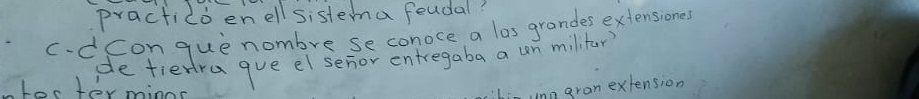 practicó en el sistema feudal?
c-d Con que nombre se conoce a las grandes extensiones
de tierra que el señor entregaba a un militar?
terminos
una gran extension